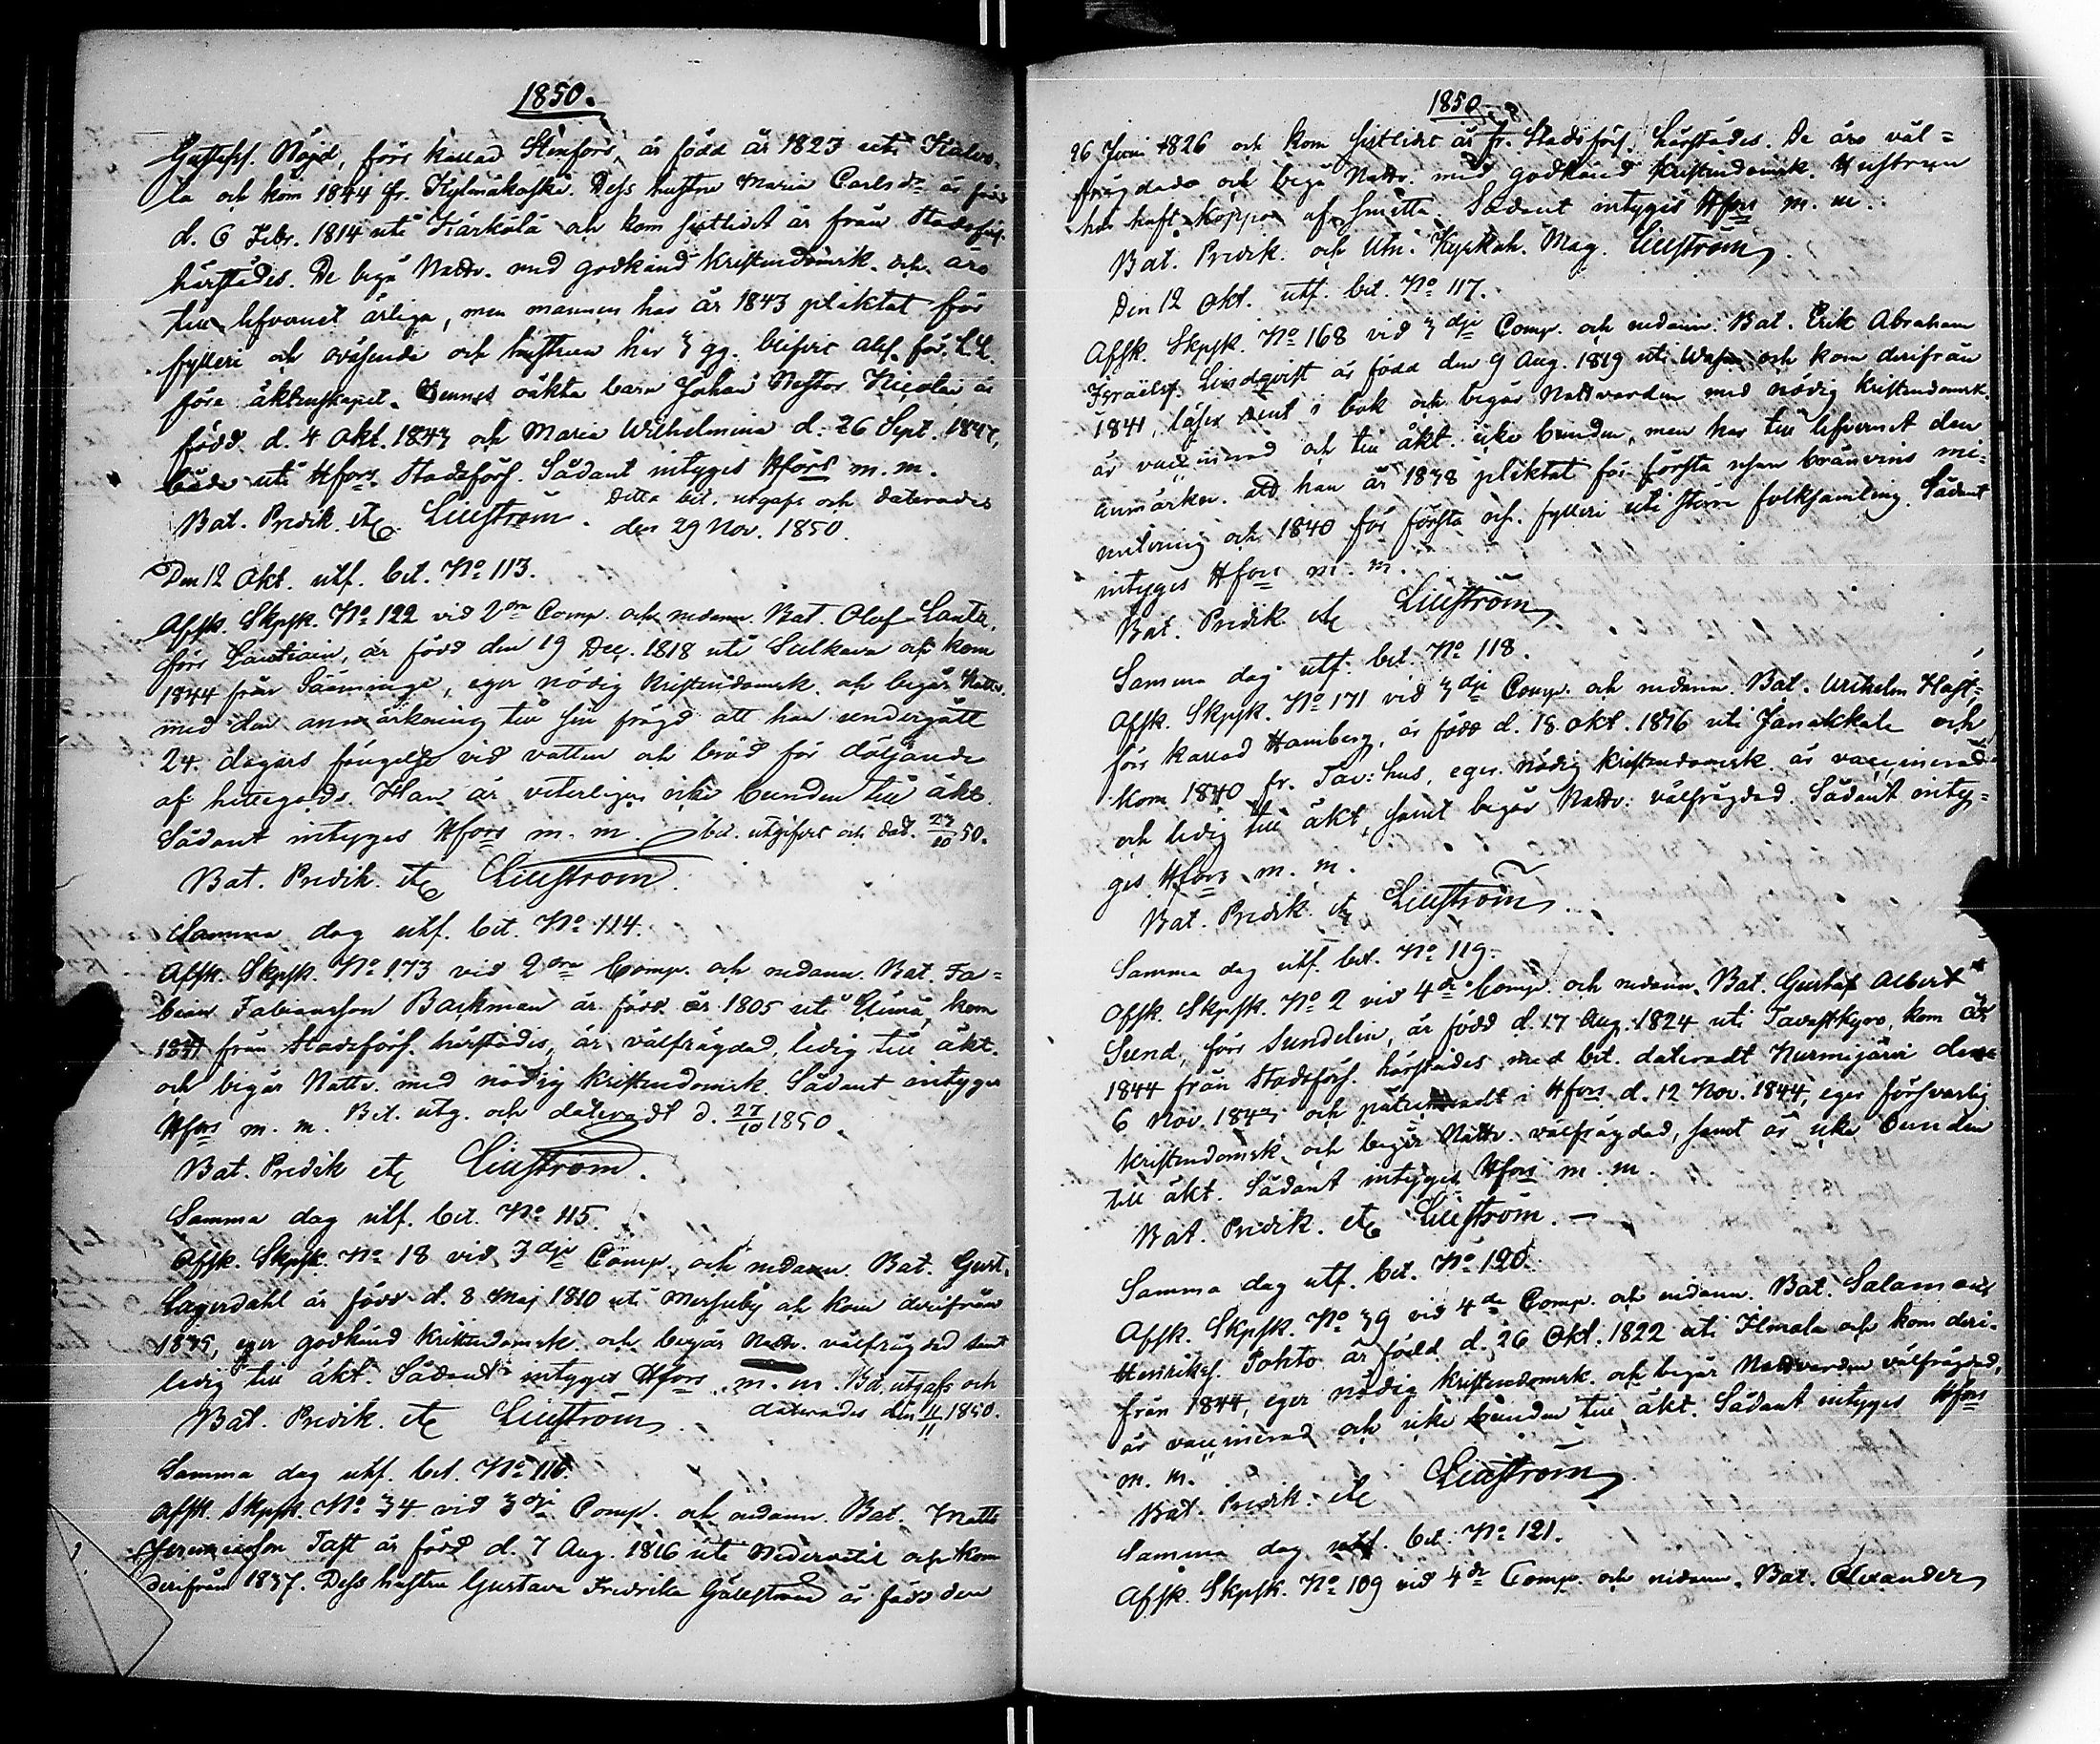 1850.
Gustafss. Nöjd, förr kallad Stenfors, är född år 1823 uti Kalvo-
la och kom 1844 fr. Kylmäkoski. Dess hustru Maria Carlsdr är född
d. 6 Febr. 1814 uti Kärkölä och kom sistlidet år från Stadsförs.
härstädes. De begå Nattv. med godkänd kristendomsk. och äro
till lefvernet ärliga, men mannen har år 1843 pliktat för
fylleri och oväsende och hustrun har 3 gg. blifvit abs. för L. L.
före äktenskapet. Hennes oäkta barn Johan Nestor Nicolai är
född d. 4 Okt. 1843 och Maria Wilhelmina d. 26 Sept. 1847,
både uti Hfors Stadsförs. Sådant intygas Hfors m. m.
Bat. Predik. etc Lillström. Detta bet. utgafs och daterades
den 29 Nov. 1850.
Den 12 Okt. utf. bet. No 113.
Afsk. Skpsk. No 122 vid 2dra Comp. och nedann. Bat. Olof Lantz,
förr Lautiain, är född den 19 Dec. 1818 uti Sulkava och kom
1844 från Sääminge, eger nödig kristendomsk. och begår Nattv.
med den anmärkning till sin frägd att han undergått
24 dagars fängelse vid vatten och bröd för döljande
af hittegods. Han är veterligen icke bunden till äkt.
Sådant intygas Hfors m. m. bet. utgifvet och dat. 23/10 50.
Bat. Predik. etc Lillström.
Samma dag utf. bet. No 114.
Afsk. Skpsk. No 173 vid 2dra Comp. och nedann. Bat. Fa-
bian Fabiansson Backman är född år 1805 uti Umeå, kom
1841 från Stadsförs. härstädes, är välfrägdad, ledig till äkt.
och begår Nattv. med nödig kristendomsk. Sådant intygas
Hfors m. m. Bet. utg. och dateradt d. 27/10 1850.
Bat. Predik etc Lillström.
Samma dag utf. bet. No 115.
Afsk. Skpsk. No 18 vid 3dje Comp. och nedann. Bat. Gust.
Lagerdahl är född d. 8 Maj 1810 uti Mersuby och kom derifrån
1835, eger godkänd kristendomsk. och begår Nattv. välfrägdad samt
ledig till äkt. Sådant intygas Hfors m. m. Bet. utgafs och
Bat. Predik. etc Lillström. daterades den 11/11 1850.
Samma dag utf. bet. No 116.
Afsk. Skpsk. No 34 vid 3dje Comp. och nedann. Bat. Matts
Jeremiasson Taft är född d. 7 Aug. 1816 uti Nedervetil och kom
derifrån 1837. Dess hustru Gustava Fredrika Gällström är född den
1850
26 Juni 1826 och kom sistlidet år fr. Stadsförs. härstädes. De äro väl-
frägdade och begå Nattv. med godkänd kristendomsk. Hustrun
har haft koppor af smitta. Sådant intygas Hfors m. m.
Bat. Predik. och Utn. Kyrkoh. Mag. Lillström.
Den 12 Okt. utf. bet. No 117.
Afsk. Skpsk. No 168 vid 3dje Comp. och nedann. Bat. Erik Abraham
Israelss. Lindqvist är född den 9 Aug. 1819 uti Wasa och kom derifrån
1841, läser rent i bok och begår Nattvarden med nödig kristendomsk.
är vaccinerad och till äkt. icke bunden, men har till lefvernet den
anmärkn. att han år 1838 pliktat för första resan bränvins mi-
nutering och 1840 för första res. fylleri uti större folksamling. Sådant
intygas Hfors m. m.
Bat. Predik etc Lillström
Samma dag utf. bet. No 118.
Afsk. Skpsk. No 171 vid 3dje Comp. och nedann. Bat. Wilhelm Hast,
förr kallad Hamberg, är född d. 18 Okt. 1816 uti Janakkala och
kom 1840 fr. Tav:hus, eger nödig kristendomsk. är vaccinerad
och ledig till äkt, samt begår Nattv. välfrägdad. Sådant inty-
gas Hfors m. m.
Bat. Predik etc Lillström
Samma dag utf. bet. No 119.
Afsk. Skpsk. No 2 vid 4de Comp. och nedann. Bat. Gustaf Albert
Sund, förr Sundelin, är född d. 17 Aug. 1824 uti Tavastkyro, kom år
1844 från Stadsförs. härstädes med bet. dateradt Nurmijärvi den
6 Nov. 1843 och påtecknadt i Hfors d. 12 Nov. 1844, eger försvarlig
kristendomsk. och begår Nattv. välfrägdad, samt är icke bunden
till äkt. Sådant intygas Hfors m. m.
Bat. Predik. etc Lillström.
Samma dag utf. bet. No 120.
Afsk. Skpsk. No 39 vid 4de Comp. och nedann. Bat. Salamon
Henrikss. Pohto är född d. 26 Okt. 1822 uti Ilmola och kom deri-
från 1844, eger nödig kristendomsk. och begår Nattvarden välfrägdad,
är vaccinerad och icke bunden till äkt. Sådant intygas Hfors
m. m.
Bat. Predik. etc Lillström
Samma dag utf. bet. No 121.
Afsk. Skpsk. No 109 vid 4de Comp. och nedann. Bat. Alexander